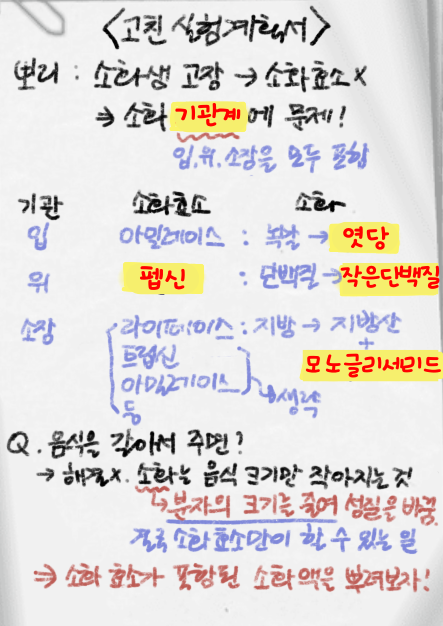 <고친 실험계획서>
뽀리 : 소화샘 고장 → 소화효소 X
⇒ 소화 기관계에 문제!
입, 위, 소장을 모두 포함
기관 소화효소 소화
입 아밀레이스 : 녹말 → 엿당
위 펩신 : 단백질 → 작은단백질
소장 라이페이스 : 지방 → 지방산
트립신 +
모노글리세리드
아밀레이스 → 생략
등
Q. 음식을 갈아서 주면?
→ 해결 X. 소화는 음식 크기만 작아지는 것
↳ 분자의 크기를 줄여 성질을 바꿈
결국 소화효소만이 할 수 있는 일
⇒ 소화 효소가 포함된 소화액을 뿌려보자!